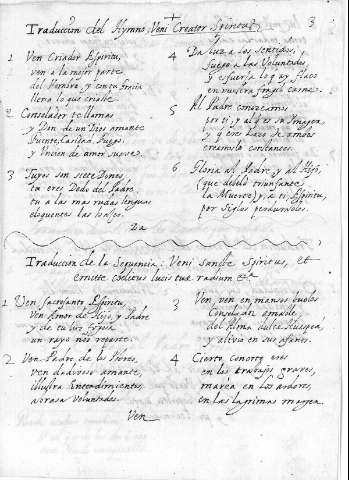 Traduccion del Hymno, Veni Creator Spiritus
3
1
Ven Criador Espiritu,
ven a la mejor parte
del Hombre, y con tu gracia
llena lo que criaste.
2
Consolador te llamas
y Don de un Dios amante
Fuente, Caridad, Fuego,
y Uncion de amor suave.
3
Tuyos son siete Dones,
tu eres Dedo del Padre,
tu a las mas rudas lenguas
eloquentes las haces.
Da
4
Da luz a los sentidos,
fuego a las Voluntades,
y esfuerza lo que flaco
en nuestra fragil carne.
5
Al Padre conozcamos
por ti, y al Hijo su Imagen,
y que eres lazo de ambos
creamoslo constantes.
6
Gloria al Padre, y al Hijo,
(que debeló triunfante
la Muerte) y a ti Espiritu,
por siglos perdurables.
Traduccion de la Sequencia: Veni Sancte Spiritus, et
emitte coelitus lucis tuæ radium
1
Ven, sacrosanto Espiritu,
Ven Amor de Hijo, y Padre
y de tu luz
un rayo nos reparte.
2
Ven Padre de los Pobres,
ven dadivoso amante,
illustra Entendimientos,
abrasa Voluntades.
Ven
3
Ven, ven en mansos buelos
Consolador amable,
del Alma dulce Huesped,
y alivio en sus afanes.
4
Cierto, conorte eres
en los trabajos graves,
marea en los ardores,
en las lagrimas margen.